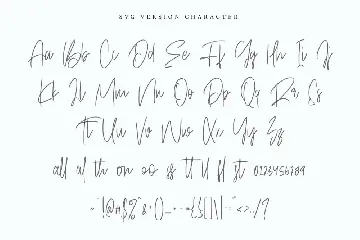 SVG VERSION CHARACTER
Aa Bb Cc Dd Ee Ff Gg Hh Ii Jj
Kk Ll Mm Nn Oo Pp Qq Rr Ss
Tt Uu Vv Ww Xx Yy Zz
all al th on oo is tt ll fl st 0123456789